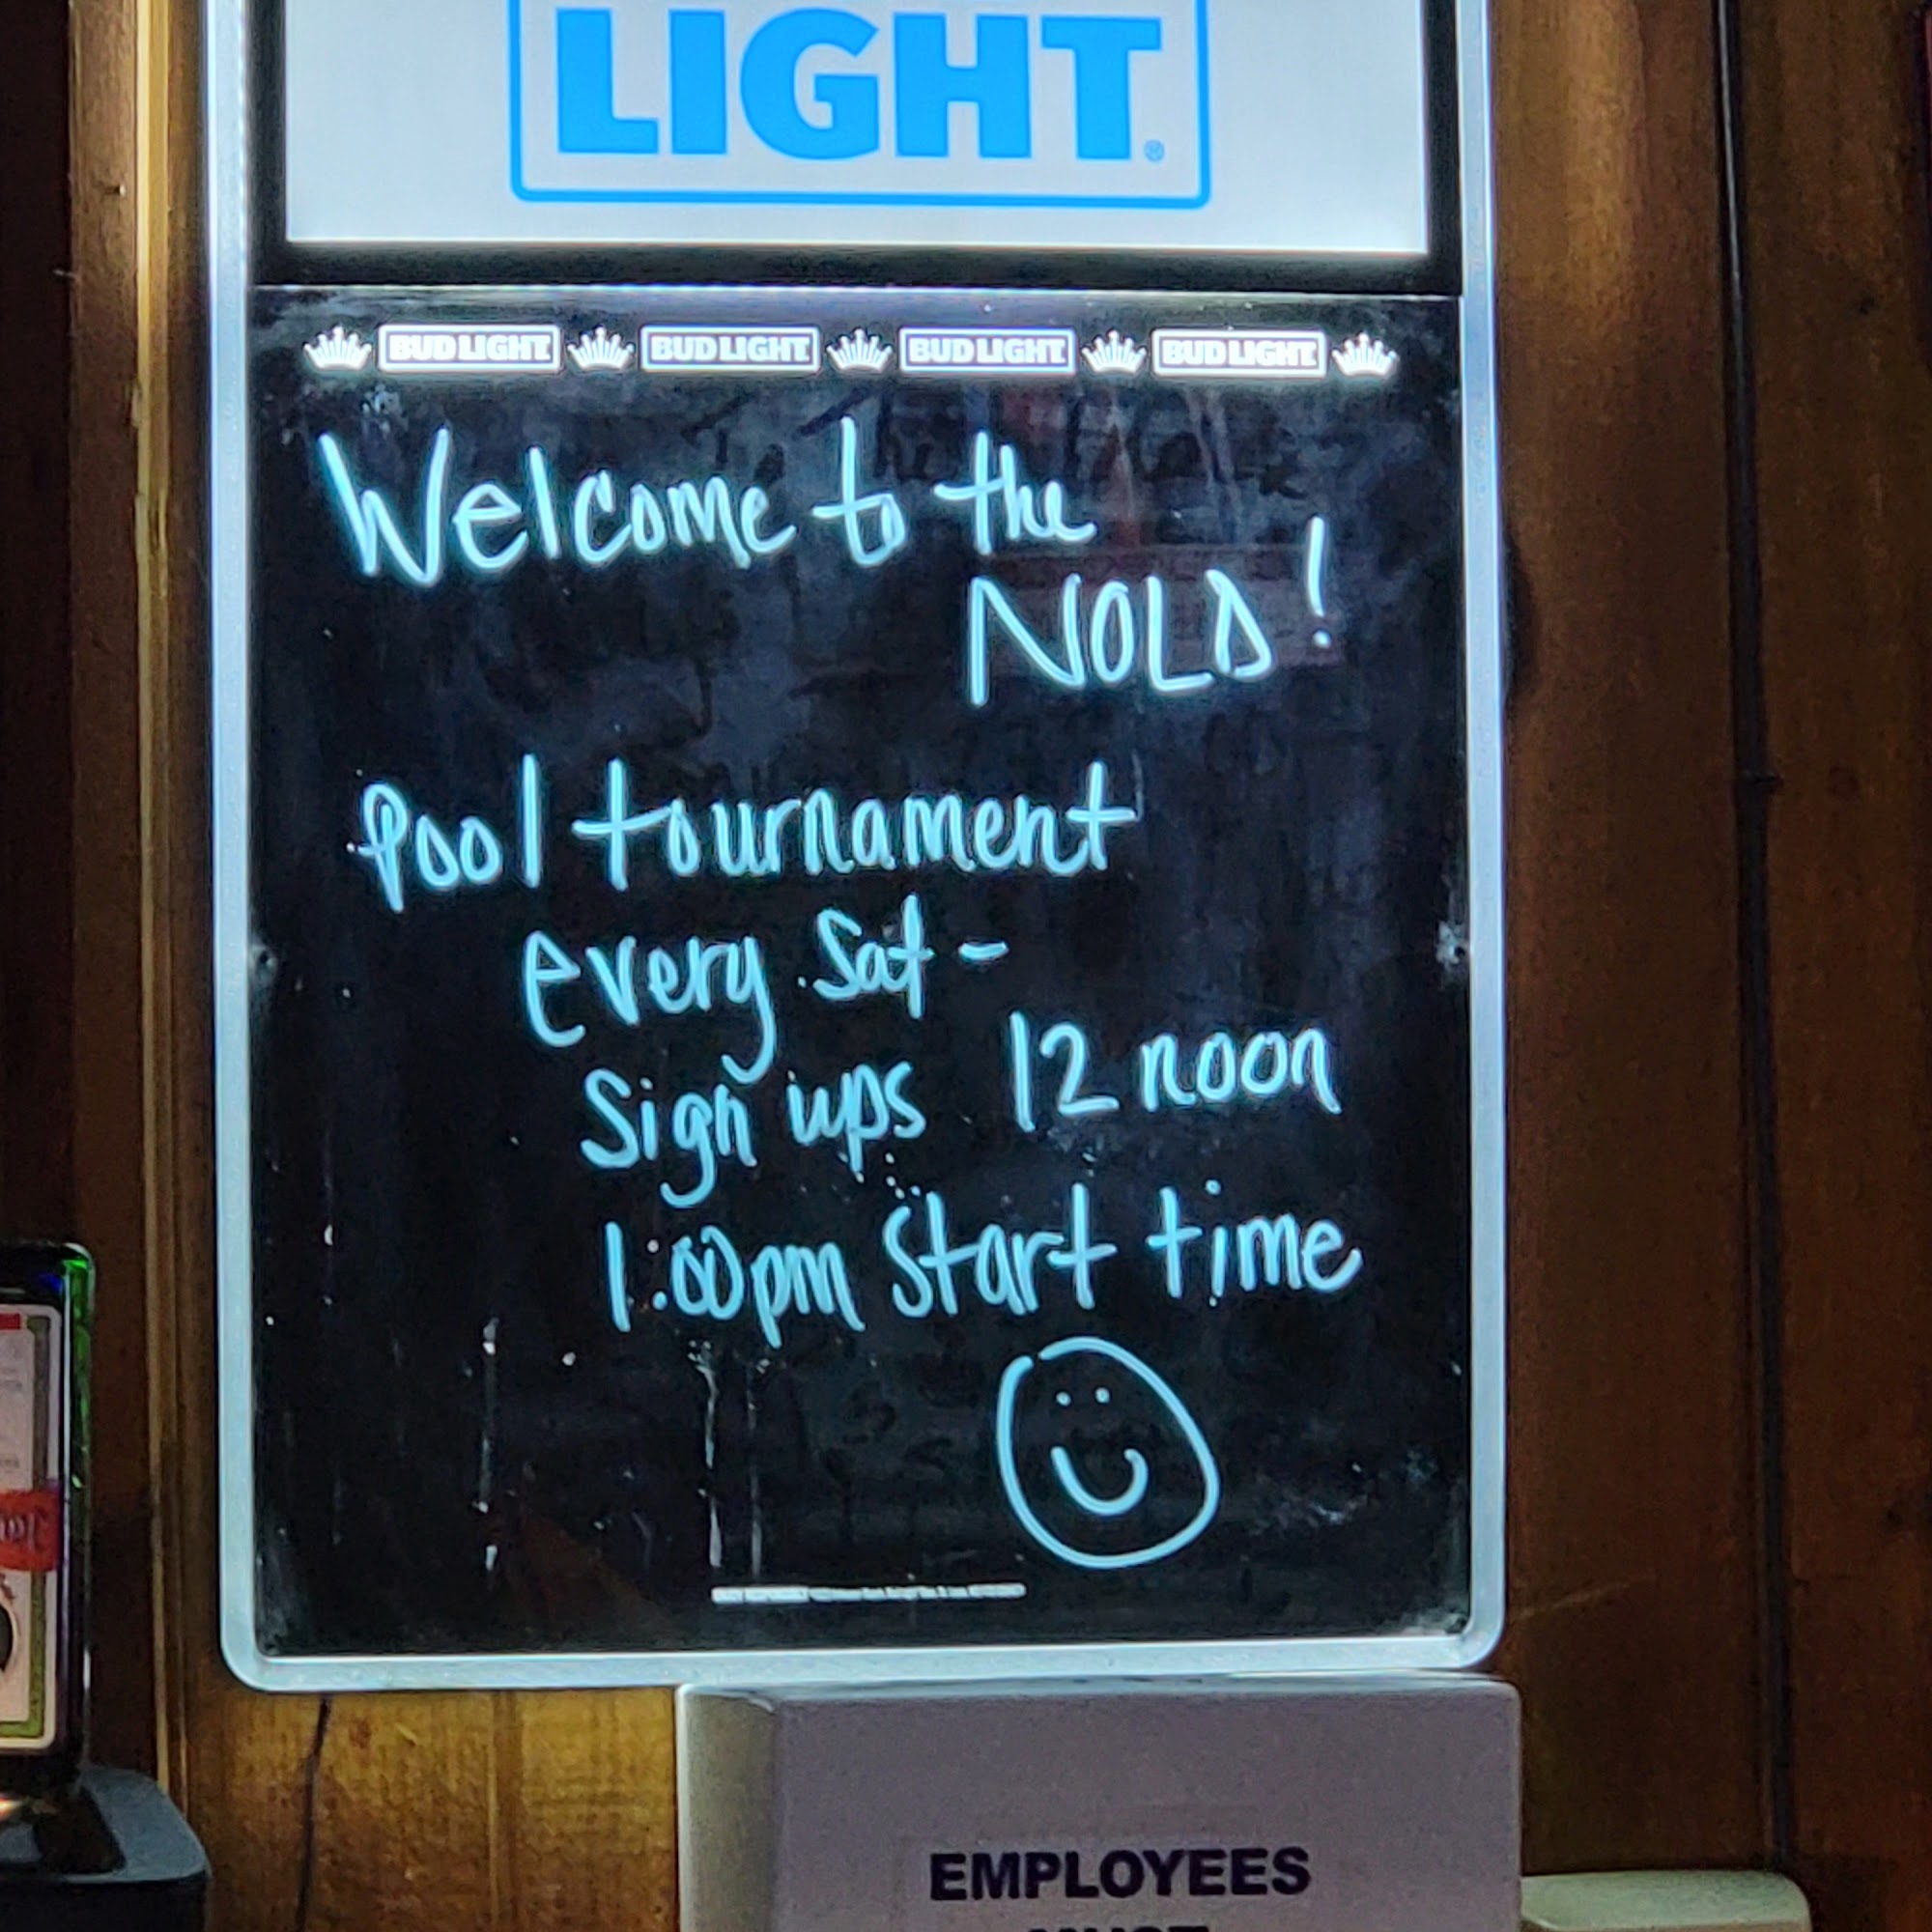 LIGHT®
BUD LIGHT BUD LIGHT BUD LIGHT BUD LIGHT
Welcome to the
NOLD!
Pool tournament
every Sat -
Sign ups 12 noon
1:00pm Start time
EMPLOYEES
MUST